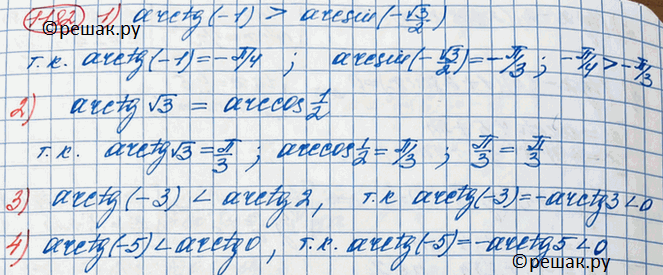 1182 1) arctg(-1) > arcsin(-√3/2)
©решак.ру
т.к. arctg(-1)=-π/4 ; arcsin(-√3/2)=-π/3 ; -π/4 > -π/3
2) arctg √3 = arccos 1/2
т.к. arctg √3 = π/3 ; arccos 1/2 = π/3 ; π/3 = π/3
3) arctg(-3) < arctg 2, т.к arctg(-3)=-arctg3<0
4) arctg(-5)<arctg 0, т.к. arctg(-5)=-arctg5<0
©решак.ру